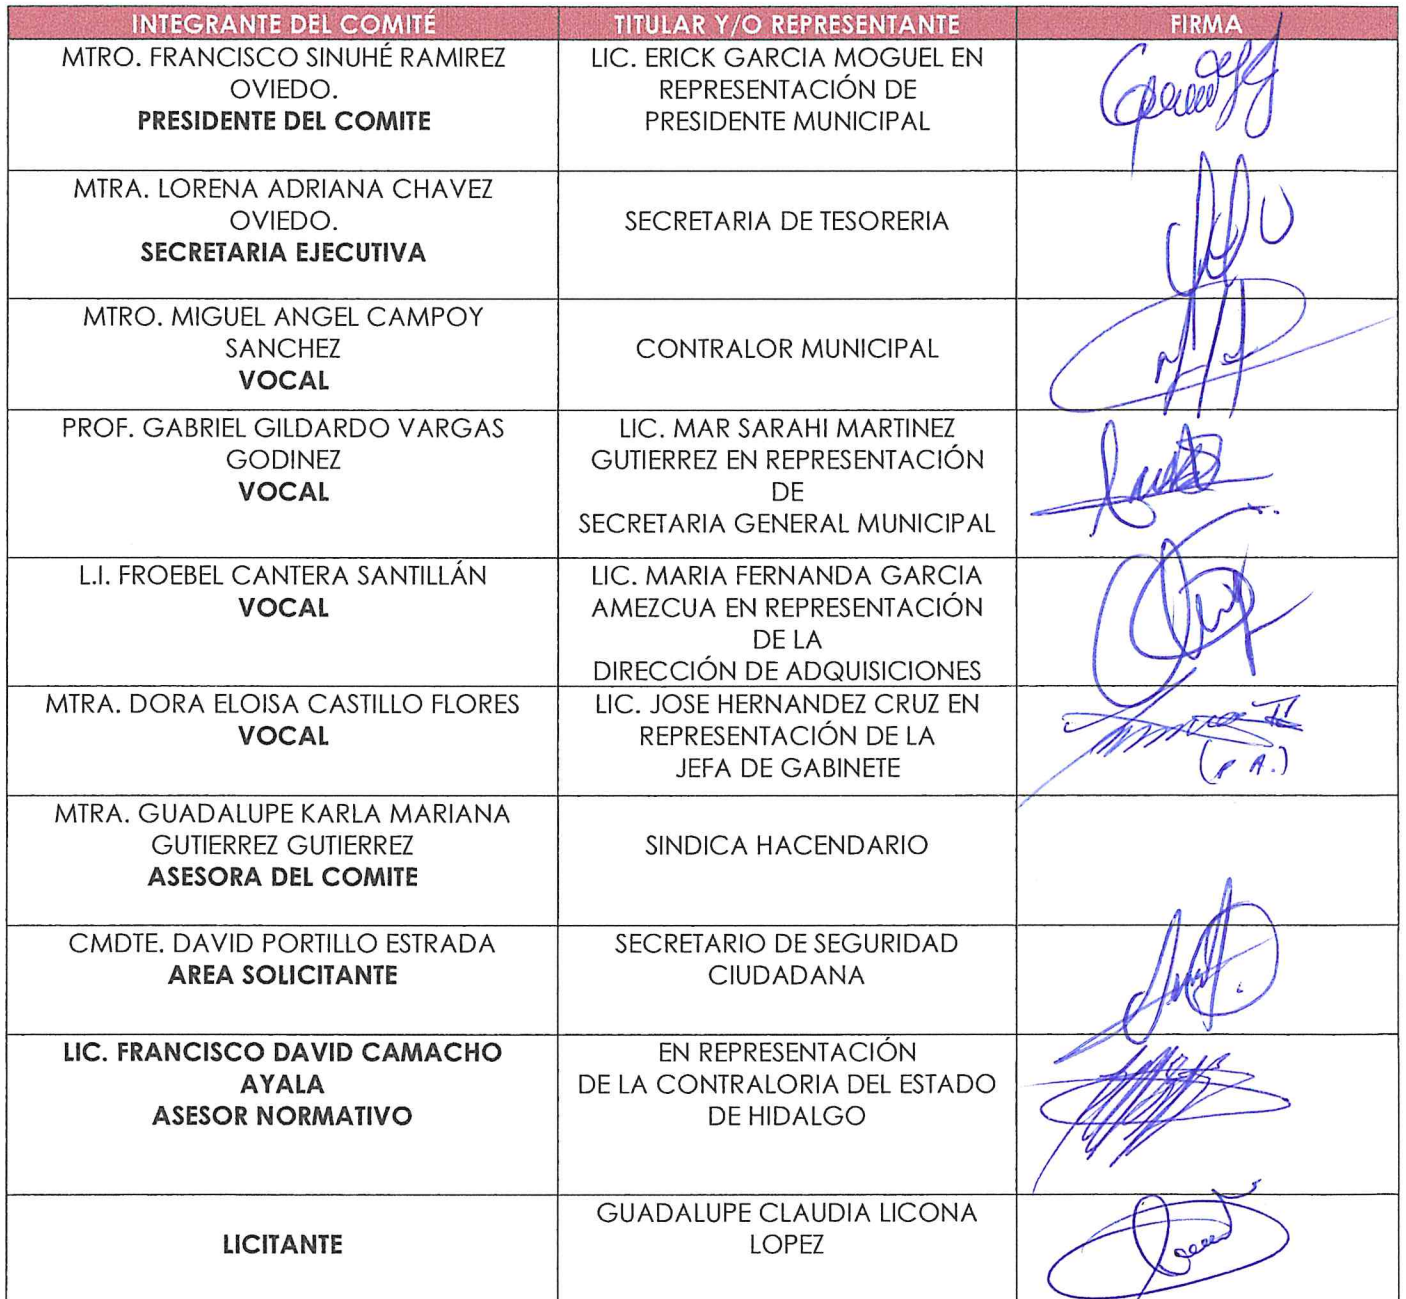 INTEGRANTE DEL COMITÉ
TITULAR Y/O REPRESENTANTE
FIRMA
MTRO. FRANCISCO SINUHÉ RAMIREZ
OVIEDO.
PRESIDENTE DEL COMITE
LIC. ERICK GARCIA MOGUEL EN
REPRESENTACIÓN DE
PRESIDENTE MUNICIPAL
MTRA. LORENA ADRIANA CHAVEZ
OVIEDO.
SECRETARIA EJECUTIVA
SECRETARIA DE TESORERIA
MTRO. MIGUEL ANGEL CAMPOY
SANCHEZ
VOCAL
CONTRALOR MUNICIPAL
PROF. GABRIEL GILDARDO VARGAS
GODINEZ
VOCAL
LIC. MAR SARAHI MARTINEZ
GUTIERREZ EN REPRESENTACIÓN
DE
SECRETARIA GENERAL MUNICIPAL
L.I. FROEBEL CANTERA SANTILLÁN
VOCAL
LIC. MARIA FERNANDA GARCIA
AMEZCUA EN REPRESENTACIÓN
DE LA
DIRECCIÓN DE ADQUISICIONES
MTRA. DORA ELOISA CASTILLO FLORES
VOCAL
LIC. JOSE HERNANDEZ CRUZ EN
REPRESENTACIÓN DE LA
JEFA DE GABINETE
(P A.)
MTRA. GUADALUPE KARLA MARIANA
GUTIERREZ GUTIERREZ
ASESORA DEL COMITE
SINDICA HACENDARIO
CMDTE. DAVID PORTILLO ESTRADA
AREA SOLICITANTE
SECRETARIO DE SEGURIDAD
CIUDADANA
LIC. FRANCISCO DAVID CAMACHO
AYALA
ASESOR NORMATIVO
EN REPRESENTACIÓN
DE LA CONTRALORIA DEL ESTADO
DE HIDALGO
LICITANTE
GUADALUPE CLAUDIA LICONA
LOPEZ